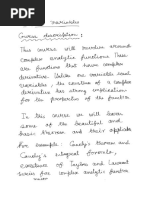 variables
Course description :
This course will revolve around
complex analytic functions. These
are functions that have complex
derivative. Unlike one variable real
variables, the existence of a complex
derivative has strong implication
for the properties of the function
In this course we will learn
some of the beautiful and
basic theorem and their applicatio
For example: Cauchy's theorem and
Cauchy's integral formula,
existence of Taylor and Laurent
series for complex analytic function